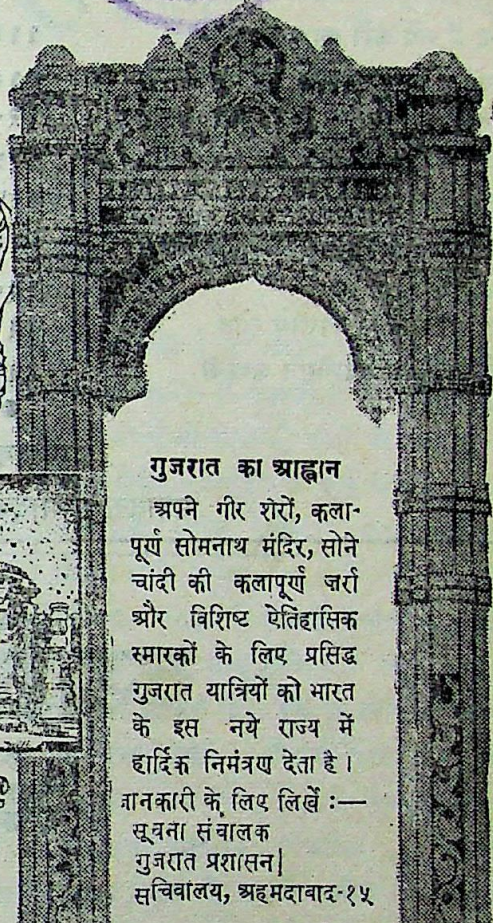 गुजरात का आह्वान
अपने गीर शेरों, कला-
पूर्ण सोमनाथ मंदिर, सोने
चांदी की कलापूर्ण जरी
और विशिष्ट ऐतिहासिक
स्मारकों के लिए प्रसिद्ध
गुजरात यात्रियों को भारत
के इस नये राज्य में
हार्दिक निमंत्रण देता है।
जानकारी के लिए लिखें :—
सूचना संचालक
गुजरात प्रशासन
सचिवालय, अहमदाबाद-१५